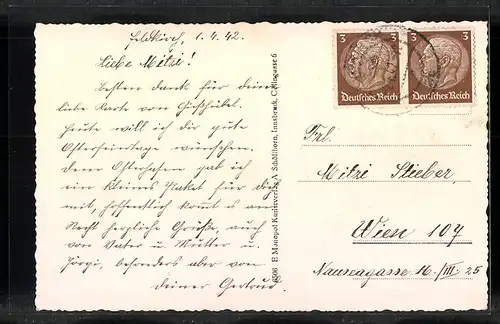 Feldkirch, 1.4.42.
Liebe Mitzi!
Besten Dank für deine
liebe Karte von Gießhübel.
Heute will ich dir gute
Osterfeiertage wünschen.
Dem Osterhasen gab ich
ein kleines Paket für dich
mit, hoffentlich kommt es an.
Recht herzliche Grüße, auch
von Vater u. Mutter u.
besonders aber von
deiner Gertrud.
E Monopol Kunstverlag A. Schöllhorn, Innsbruck, Colingasse 6
3 3
Deutsches Reich Deutsches Reich
Frl.
Mitzi Stieber
Wien 107
16/III. 25